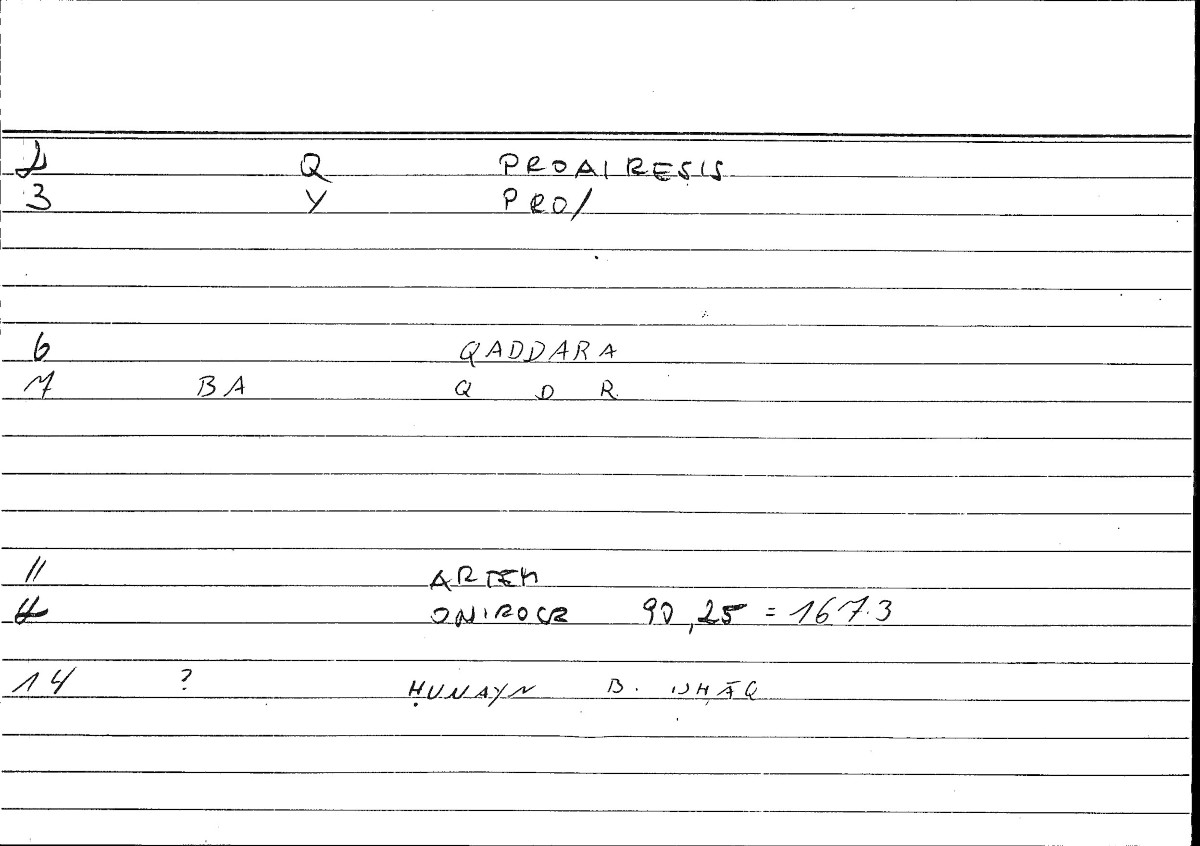 2 Q PROAIRESIS
3 Y PRO/
6 QADDARA
7 BA Q D R
11 ARTEM
ONIROCR 90,25 = 167.3
14 ? ḤUNAYN B. ISḤĀQ